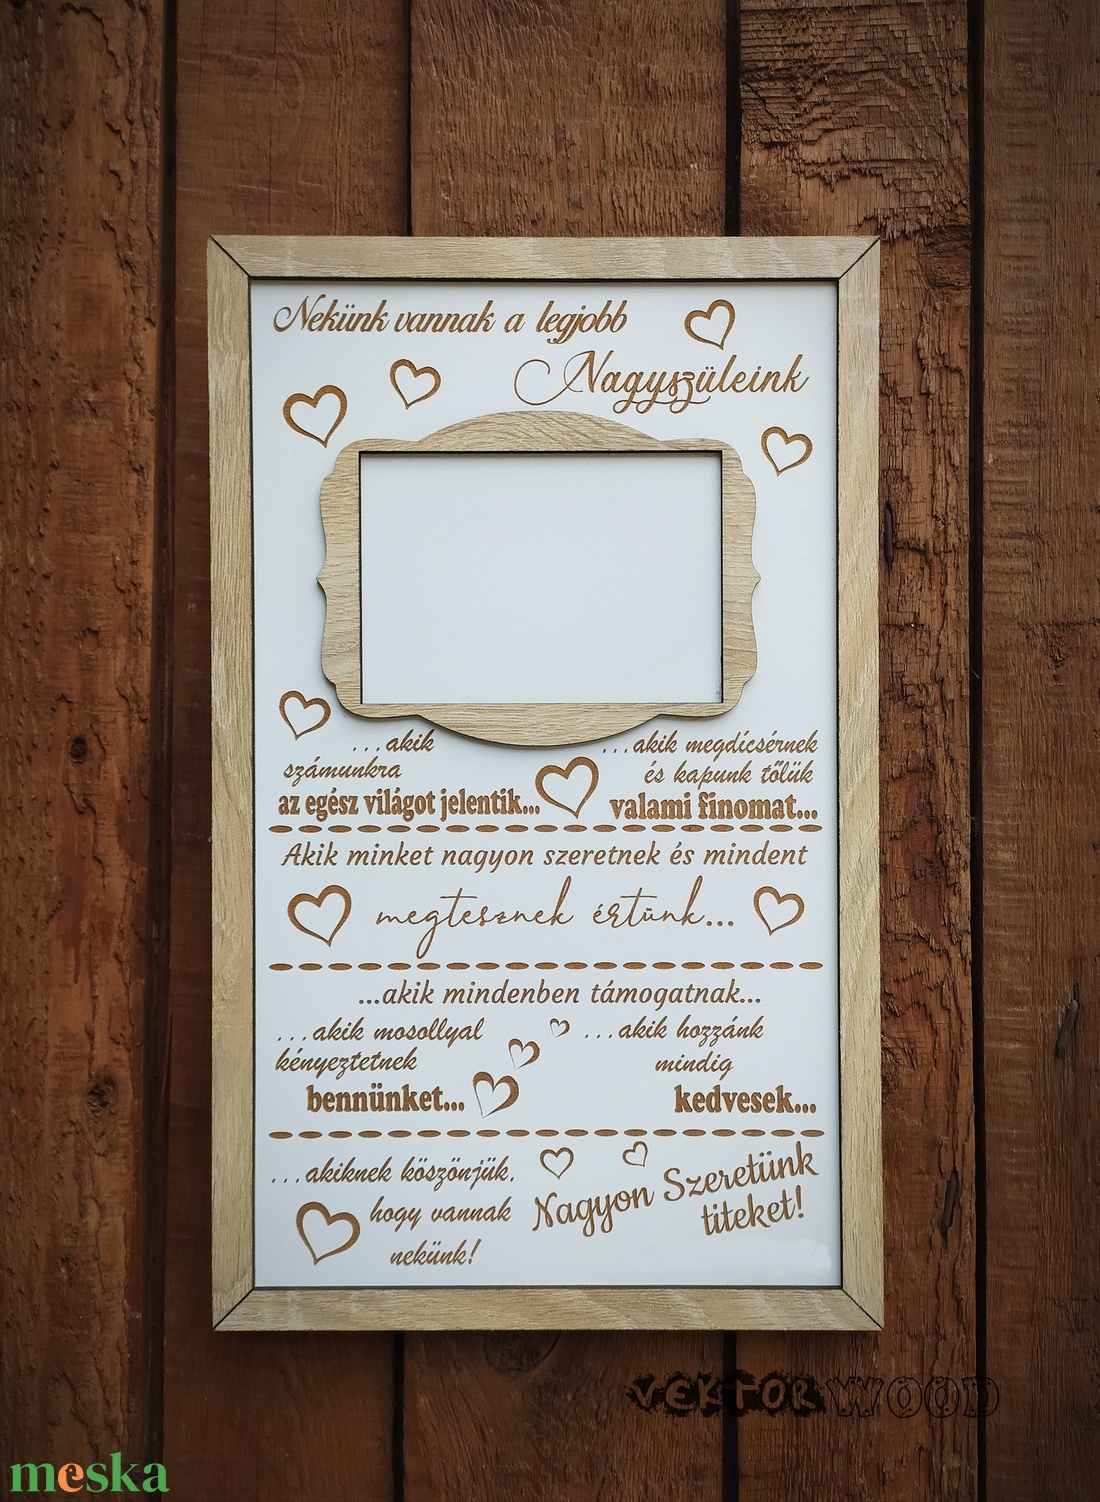 Nekünk vannak a legjobb
Nagyszüleink
...akik
számunkra
az egész világot jelentik...
...akik megdícsérnek
és kapunk tőlük
valami finomat...
Akik minket nagyon szeretnek és mindent
megtesznek értünk...
...akik mindenben támogatnak...
...akik mosollyal
kényeztetnek
bennünket...
...akik hozzánk
mindig
kedvesek...
...akiknek köszönjük,
hogy vannak
nekünk!
Nagyon Szeretünk
titeket!
VEKTORWOOD
meska